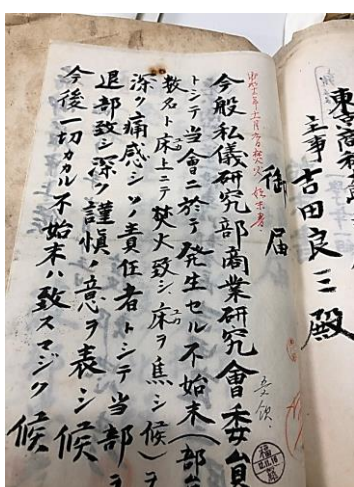 東京商
主事吉田良三殿
御届
今般私儀研究部商業研究會委員
トシテ当會ニ於テ発生セル不始末(部
数名ト床上ニテ焚火致シ床ヲ焦シ候)ヲ
深ク痛感シソノ責任者トシテ当部ヲ
退部致シ深ク謹愼ノ意ヲ表シ候
今後一切カカル不始末ハ致スマジク候
受領